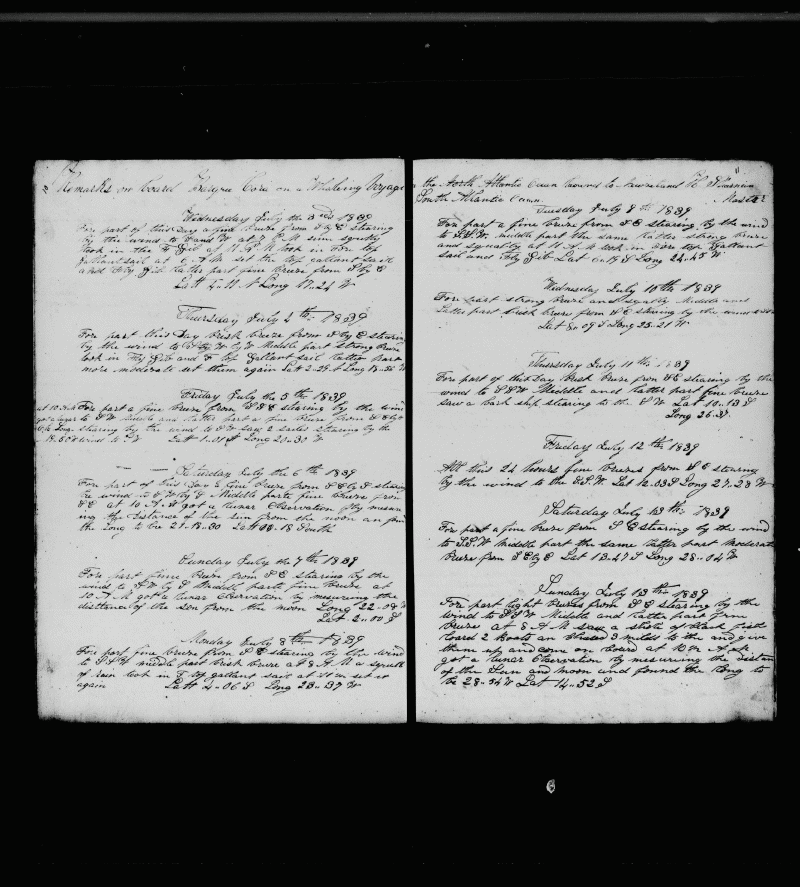 Remarks on board Barque Cora on a Whaleing Voyage
Wednesday July the 3 1839
For part of this Day a fine Breeze from S E stearing
by the wind to S and W at 7 P M sum squaly
took in the F Gib at 12 A M took in For top
gallant sail at 6 A M set the top gallant sail
and Fly Gib Latter part fine Breeze from S by E
Latt 4..11 N Long 17..24 W
Thursday July 4 th 1839
For part this Day Brisk breeze from S by E stearing
by the wind to by W Middle part strong Breeze
took in Fly Gib and F top gallant sail Latter part
more moderate set them again Latt 2..29 Long 18..50 W
Friday July the 5 th 1839
For part a fine breeze from S S E stearing by the wind
to S W Middle and Latter part fine Breeze from S E by S
stearing by the wind to S W Saw 2 sailes stearing by the
wind to Latt 1..01 N Long 20..30 W
Saturday July the 6 th 1839
For part of this Day a fine Breeze from S E by S stearing
the wind to S W by S Middle parte fine Breeze from
S E at 10 A M got a Lunar Observation by mesur
ing the Distance of the sun from the moon an foun
the Long to be 21..18..30 Latt 00..18 South
Sunday July the 7 th 1839
For part fine Breeze from S E stearing by the
wind to S W by S Middle parte fine Breeze at
10 A M got a Lunar Observation by mesuring the
distance of the sun from the moon Long 22..09 W
Lat 2..00 S
Monday July 8 th 1839
For part fine breeze from S E stearing by the wind
to S S W middle part Brisk breeze at 8 A M a squall
of rain took in F top gallant sail at 11 set it
again Latt 4..06 S Long 23..37 W
the North Atlantic Ocean bound to New
South Atlantic Ocean Master
Tuesday July 9 th 1839
For part a fine breeze from S E stearing by the wind
to S S W middle part the same Latter strong Breeze
and squaly at 11 A M took in For top Gallant
sail and Fly Gib Lat 6..19 S Long 24..45 W
Wednesday July 10 th 1839
For part strong Breeze and squaly Middle and
Latter part Brisk Breeze from S E stearing by the wind
Lat 8..09 S Long 25..21 W
Thursday July 11 th 1839
For part of this Day Brisk Breeze from S E stearing by the
wind to S S W Middle and Latter part fine breeze
saw a Bark ship stearing to the S W Lat 10..13 S
Long 26
Friday July 12 th 1839
All this 24 hours fine Breezes from S E stearing
by the wind to the S S W. Lat 12..03 S Long 27..28 W
Saturday July 13 th 1839
For part a fine breeze from S E stearing by the wind
to S S W Middle part the same Latter part Moderate
Breeze from S E by E Lat 13..47 S Long 28..04 W
Sunday July 13 th 1839
For part light Breezes from S E stearing by the
wind to S S W Middle and Latter part fine
breeze at 8 A M saw a shole of Black fish
Loard 2 Boats an 3 miles to the and give
them up and come on board at 10 A M
got a Lunar Observation by mesuring the Distan
of the Sun and moon and found the Long to
be 28..54 W Lat 14..52 S